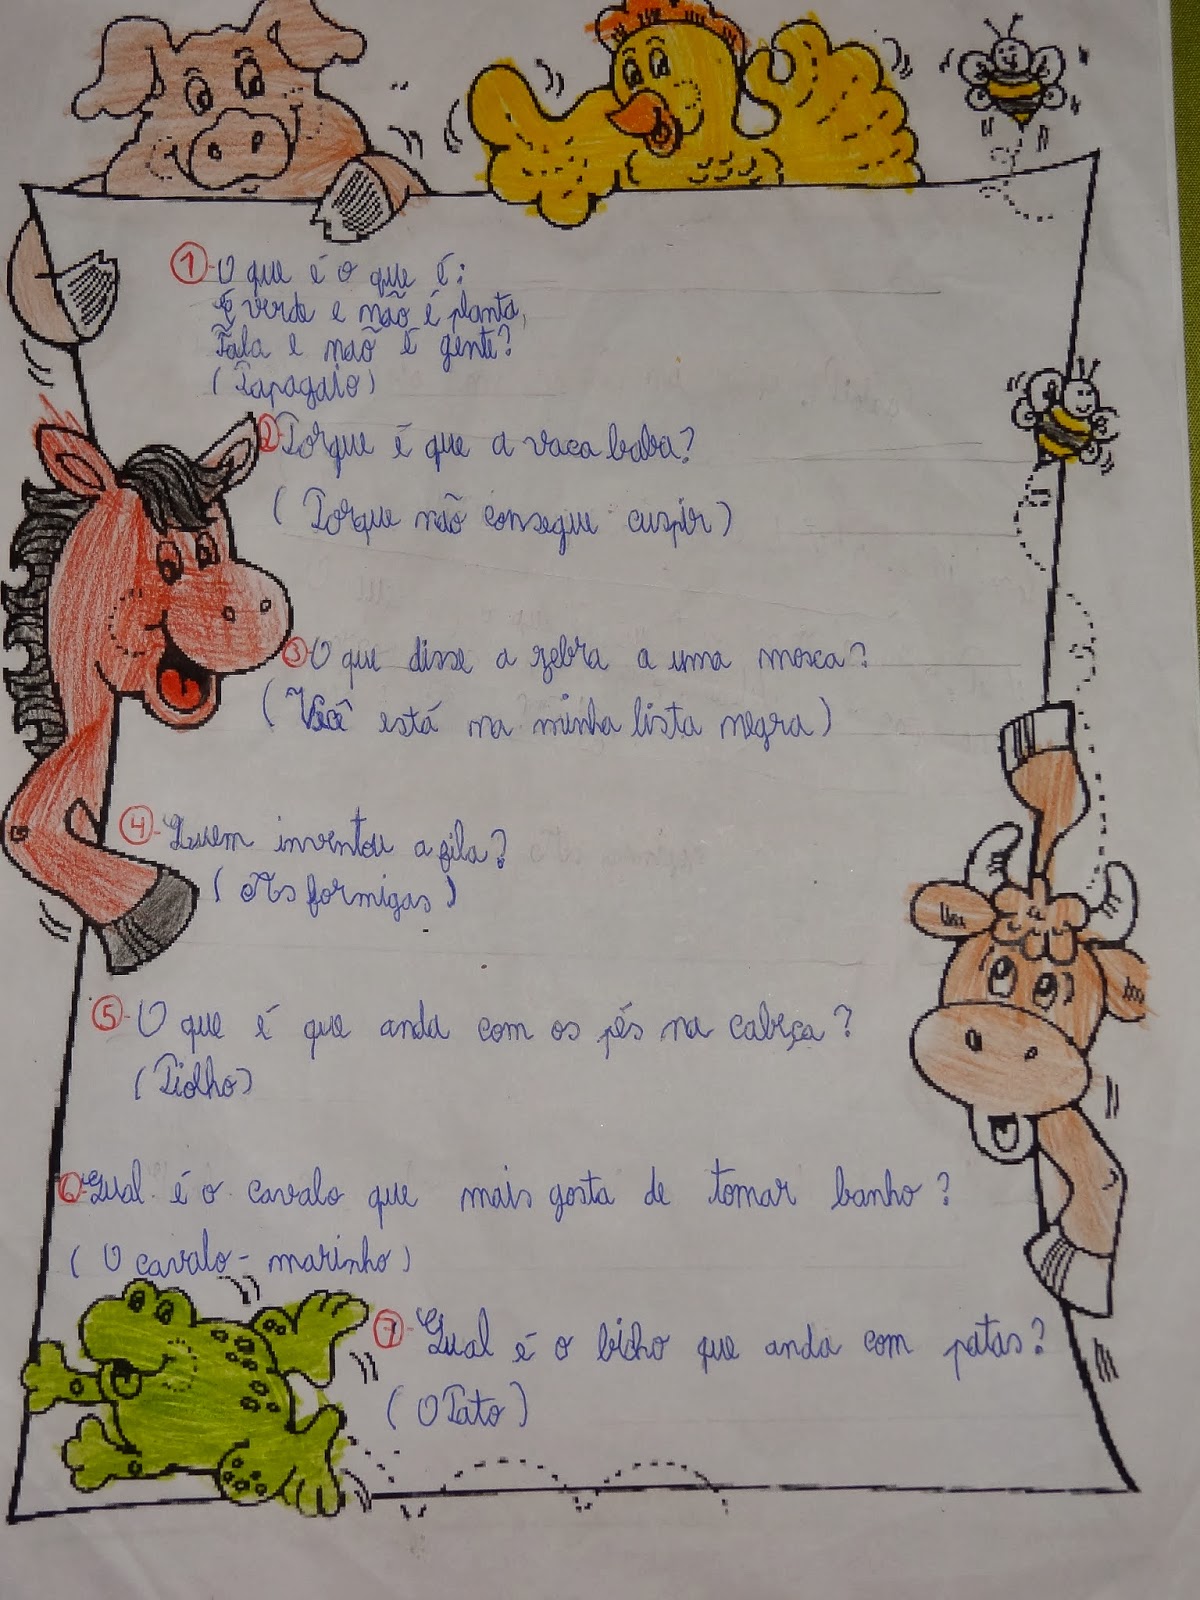 1-O que é o que é:
É verde e não é planta,
Fala e não é gente?
(Papagaio)
2-Porque é que a vaca baba?
(Porque não consegue cuspir)
3-O que disse a zebra a uma mosca?
(Você está na minha lista negra)
4-Quem inventou a fila?
(As formigas)
5-O que é que anda com os pés na cabeça?
(Piolho)
6-Qual é o cavalo que mais gosta de tomar banho?
(O cavalo-marinho)
7-Qual é o bicho que anda com patas?
(O Pato)